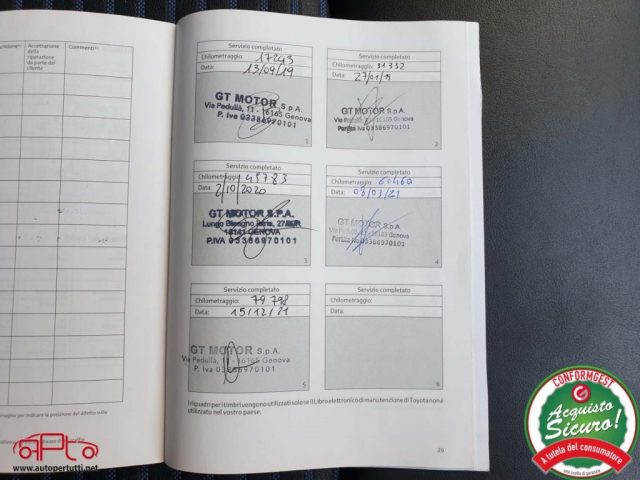 Accettazione
della
riparazione
da parte del
cliente
Commenti
Servizio completato
Chilometraggio: 17243
Data: 13/09/19
GT MOTOR S.p.A.
Via Pedullà, 11 - 16165 Genova
P. Iva 03386970101
1
Servizio completato
Chilometraggio: 31332
Data:
GT MOTOR S.p.A.
Via Pedullà, 11 - 16165 Genova
Partita Iva 03386970101
2
Servizio completato
Chilometraggio: 45783
Data: 2/10/2020
GT MOTOR S.P.A.
Lungo Bisagno Istria,
16141 GENOVA
P.IVA 03386970101
3
Servizio completato
Chilometraggio:
Data: 03/21
GT MOTOR S.p.A.
Via Pedullà, 11 - 16165 Genova
Partita Iva 03386970101
4
Servizio completato
Chilometraggio: 79798
Data: 15/12/21
GT MOTOR S.p.A.
Via Pedullà, 11 - 16165 Genova
P. Iva 03386970101
5
Servizio completato
Chilometraggio:
Data:
6
I riquadri per i timbri vengono utilizzati solo se il Libro elettronico di manutenzione di Toyota non è
utilizzato nel vostro paese.
29
per indicare la posizione del difetto sulla
www.autopertutti.net
CONFORMGEST
Acquisto
Sicuro!
A tutela del consumatore